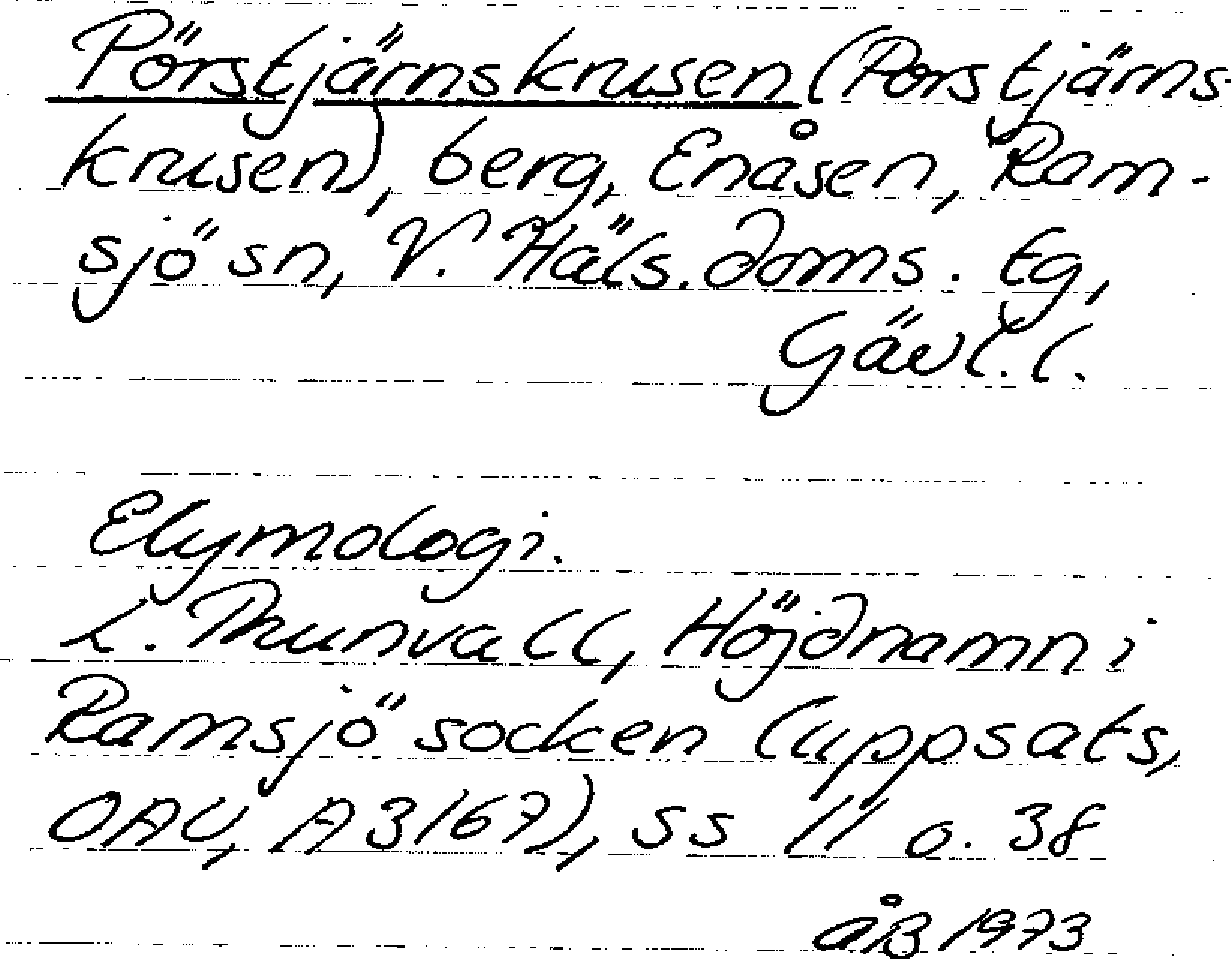 Pörstjärnskrusen (Porstjärns-
krusen), berg, Enåsen, Ram-
sjö sn, V. Häls. doms. tg,
Gävl. l.
Etymologi.
L. Thunvall, Höjdnamn i
Ramsjö socken (uppsats,
OAU, A 3167), ss 11 o. 38
ÅB 1973